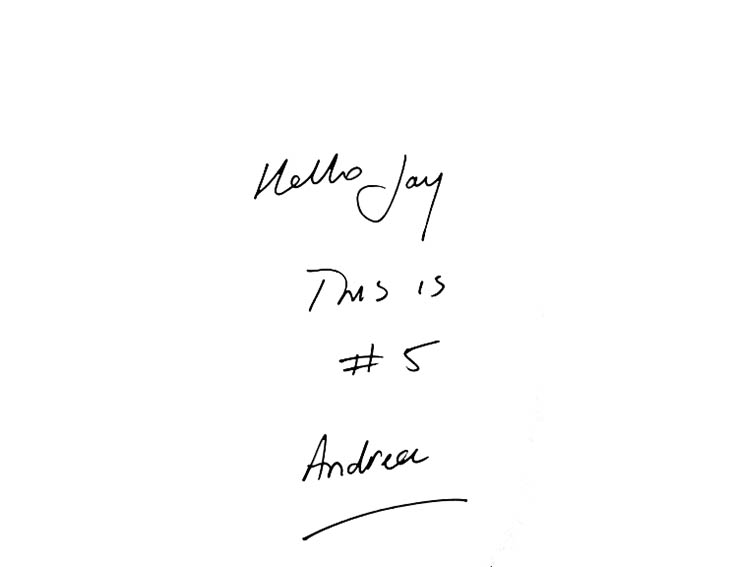 Hello Jay
This is
# 5
Andrea